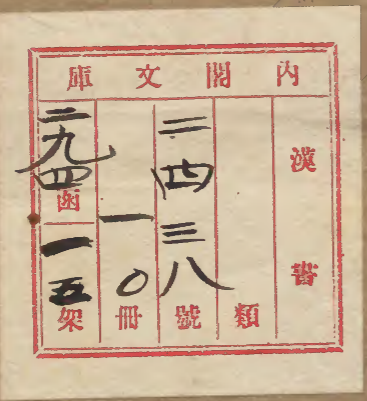 內閣文庫
漢書
類
二四三八號
一〇冊
二九四函
一五架